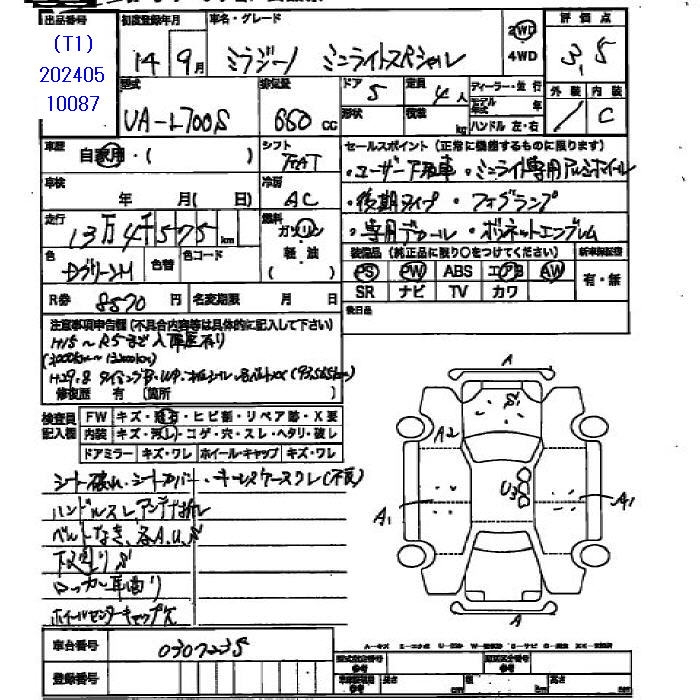 出品番号 初度登録年月 車名・グレード 2WD 評価点
(T1)
202405
10087
14年 9月 ミラジーノ ミニライトスペシャル 4WD 3.5
型式 排気量 ドア 5 定員 4人 ディーラー・並行 外装 内装
UA-L700S 660cc 形状 積載 kg モデル年式 年 ハンドル 左・右 / C
車歴 自家用・( ) シフト FAT セールスポイント (正常に機能するものに限ります)
・ユーザー下取車 ・ミニライト専用アルミホイール
車検 年 月( 日) 冷房 AC ・後期タイプ ・フォグランプ
走行 13万4千575km 燃料 ガソリン ・専用デカール ・ボンネットエンブレム
色 DグリーンM 色替 色コード 軽油 ( )
装備品 (純正品に限り○をつけてください) 新車保証書
PS PW ABS エアB AW 有・無
SR ナビ TV カワ
R券 8570円 名変期限 月 日 後日品
注意事項申告欄 (不具合内容等は具体的に記入して下さい)
H15~R5まで入庫歴有り
修復歴 有 (箇所 )
検査員記入欄 FW キズ・飛石・ヒビ割・リペア跡・X要
内装 キズ・汚レ・コゲ・穴・スレ・ヘタリ・破レ
ドアミラー キズ・ワレ ホイール・キャップ キズ・ワレ
シート破れ、シートカバー、キーレスケースワレ(不良)
ハンドルスレ アンテナ折レ
各A.U.S
下廻りS
ホイールセンターキャップ欠
A
S1
A2
U3
A1 A1
A
車台番号 0307235
登録番号